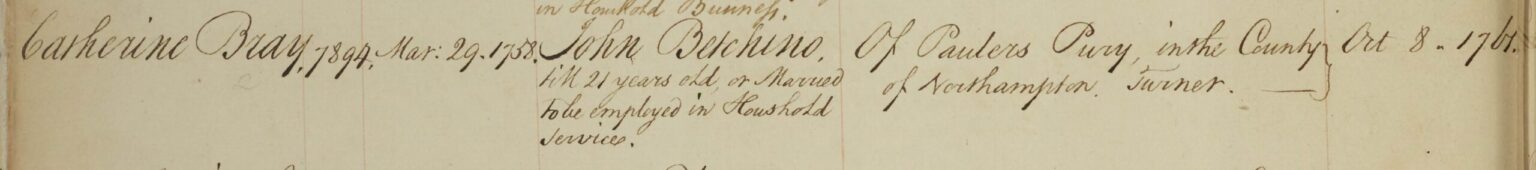 in Houshold Business.
Catherine Bray. 7894. Mar: 29. 1758. John Betchino. Of Paulers Pury, in the County Oct 8. 1761.
till 21 years old, or Married of Northampton. Turner.
to be employed in Houshold
Service.